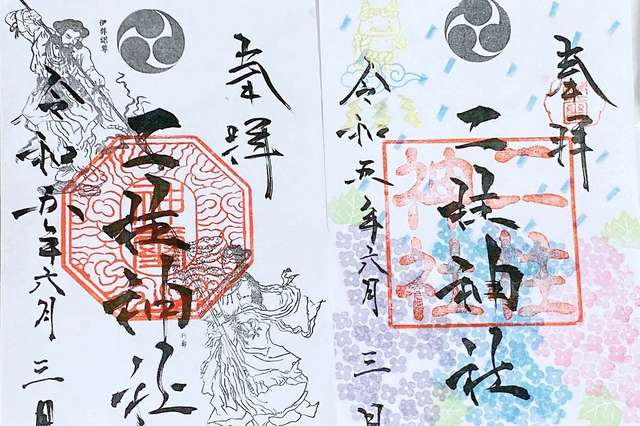 奉拝
二社神社
令和五年六月三日
伊弉諾尊
奉拝
二社神社
令和五年六月三日
二社
神社